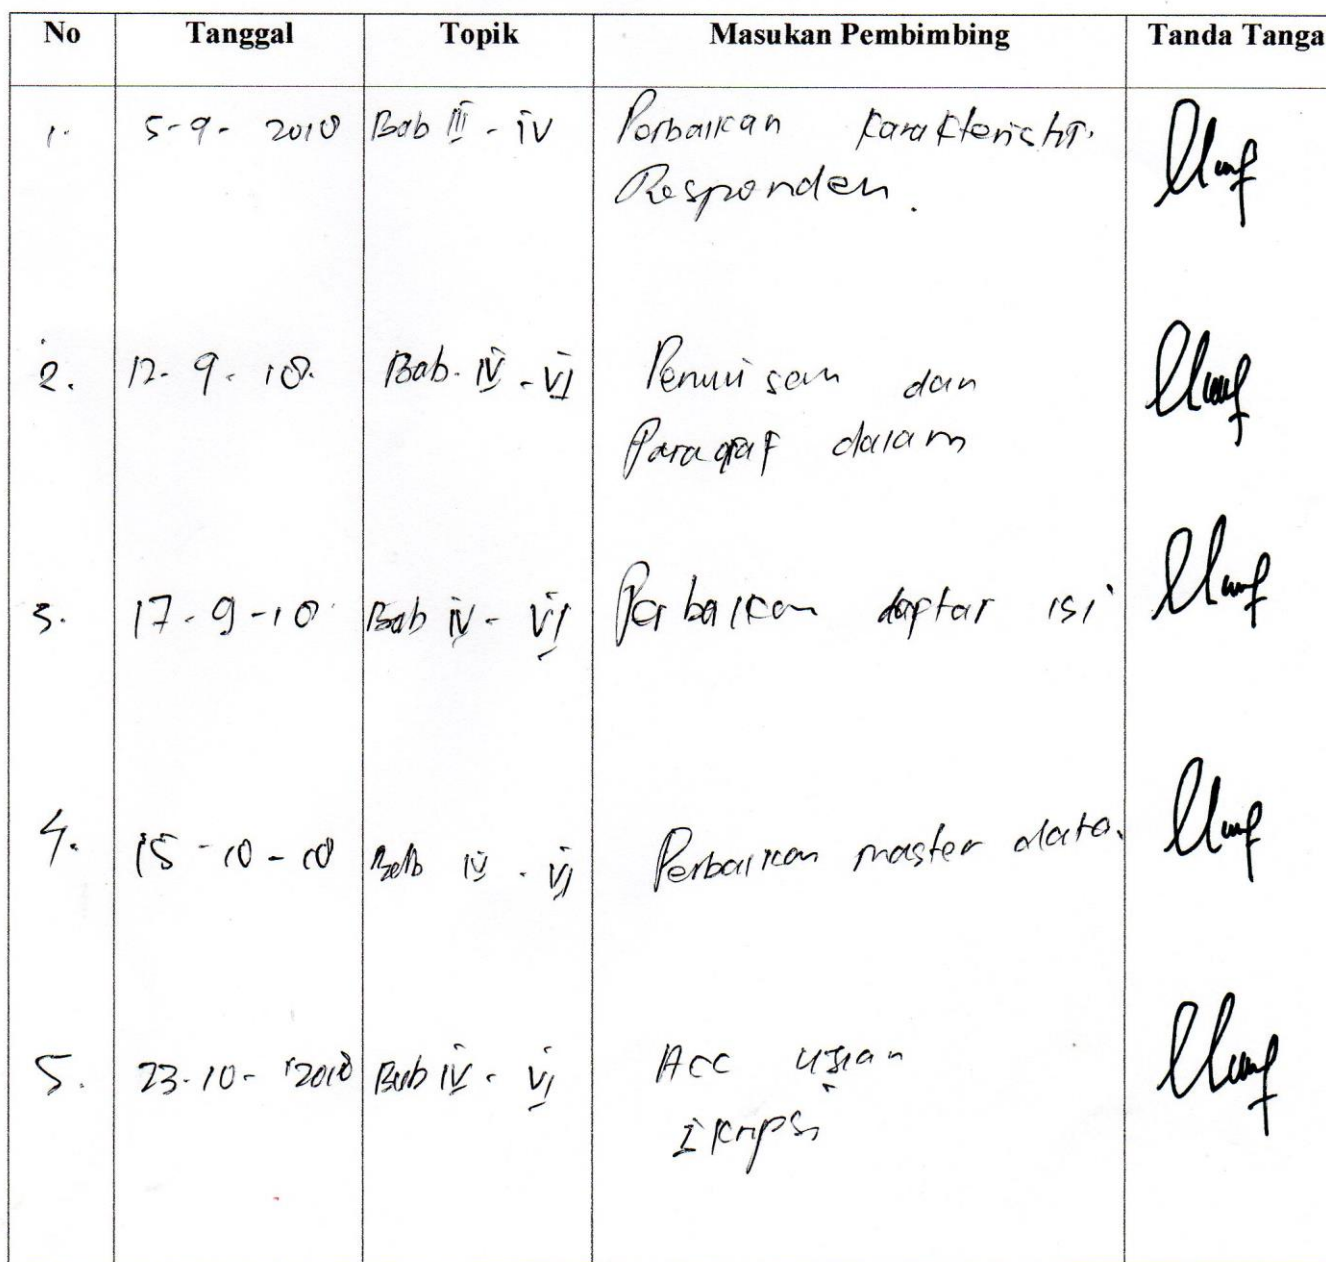 No Tanggal Topik Masukan Pembimbing Tanda Tanga
1. 5-9- 2018 Bab III - IV Perbaikan Karakteristik
Responden.
2. 12-9-18. Bab. IV - VI Penulisan dan
Paragraf dalam
3. 17-9-18 Bab IV - VI Perbaikan daftar isi
4. 15-10-18 Bab IV - VI Perbaikan master data.
5. 23-10-2018 Bab IV - VI Acc ujian